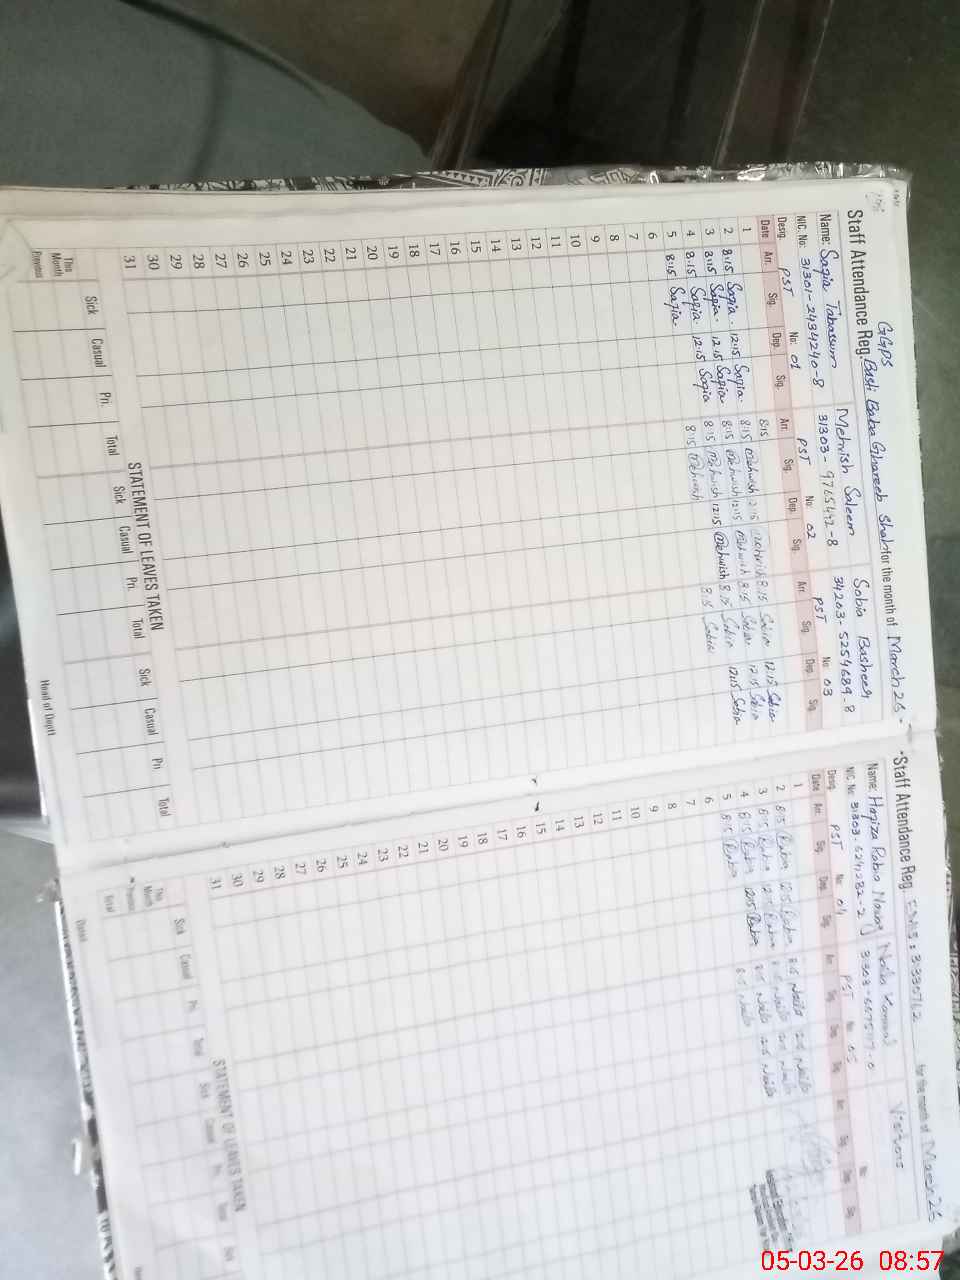 GGPS
Staff Attendance Reg. Basti Baba Ghareeb Shah for the month of March 26
Name: Sazia Tabassum Mehvish Saleem Sobia Basheer
NIC. No: 31301-2434240-8 31303-9765442-8 34203-5254689-8
Desig. PST No: 01 PST No: 02 PST No 03
Date Arr. Sig. Dep. Sig. Arr. Sig. Dep. Sig. Arr. Sig. Dep. Sig.
1
2 8:15 Sazia. 12:15 Sazia. 8:15 Mehwish 12:15 Mehwish 8:15 Sobia 12:15 Sobia
3 8:15 Sazia. 12:15 Sazia. 8:15 Mehwish 12:15 Mehwish 8:15 Sobia 12:15 Sobia
4 8:15 Sazia. 12:15 Sazia 8:15 Mehwish 12:15 Mehwish 8:15 Sobia 12:15 Sobia
5 8:15 Sazia. 8:15 Mehwish 8:15 Sobia
6
7
8
9
10
11
12
13
14
15
16
17
18
19
20
21
22
23
24
25
26
27
28
29
30
31
STATEMENT OF LEAVES TAKEN
Sick Casual Pri. Total Sick Casual Pri. Total Sick Casual Pri Total
This Month
Previous
Head of Deptt
Staff Attendance Reg. for the month of March 26
Name: Hafiza Rabia Naila Visitors
NIC. No
Desig. PST No: 04 PST No: 05 No:
Date Arr. Sig. Dep. Sig. Arr. Sig. Dep. Sig. Arr. Sig. Dep. Sig.
1
2 8:15 Rabia 12:15 Rabia 8:15 Naila 12:15 Naila
3 8:15 Rabia 12:15 Rabia 8:15 Naila 12:15 Naila
4 8:15 Rabia 12:15 Rabia 8:15 Naila 12:15 Naila
5 8:15 Rabia 8:15 Naila
6
7
8
9
10
11
12
13
14
15
16
17
18
19
20
21
22
23
24
25
26
27
28
29
30
31
STATEMENT OF LEAVES TAKEN
Sick Casual Pri. Total Sick Casual Pri. Total Sick
This Month
Previous
Total
05-03-26 08:57